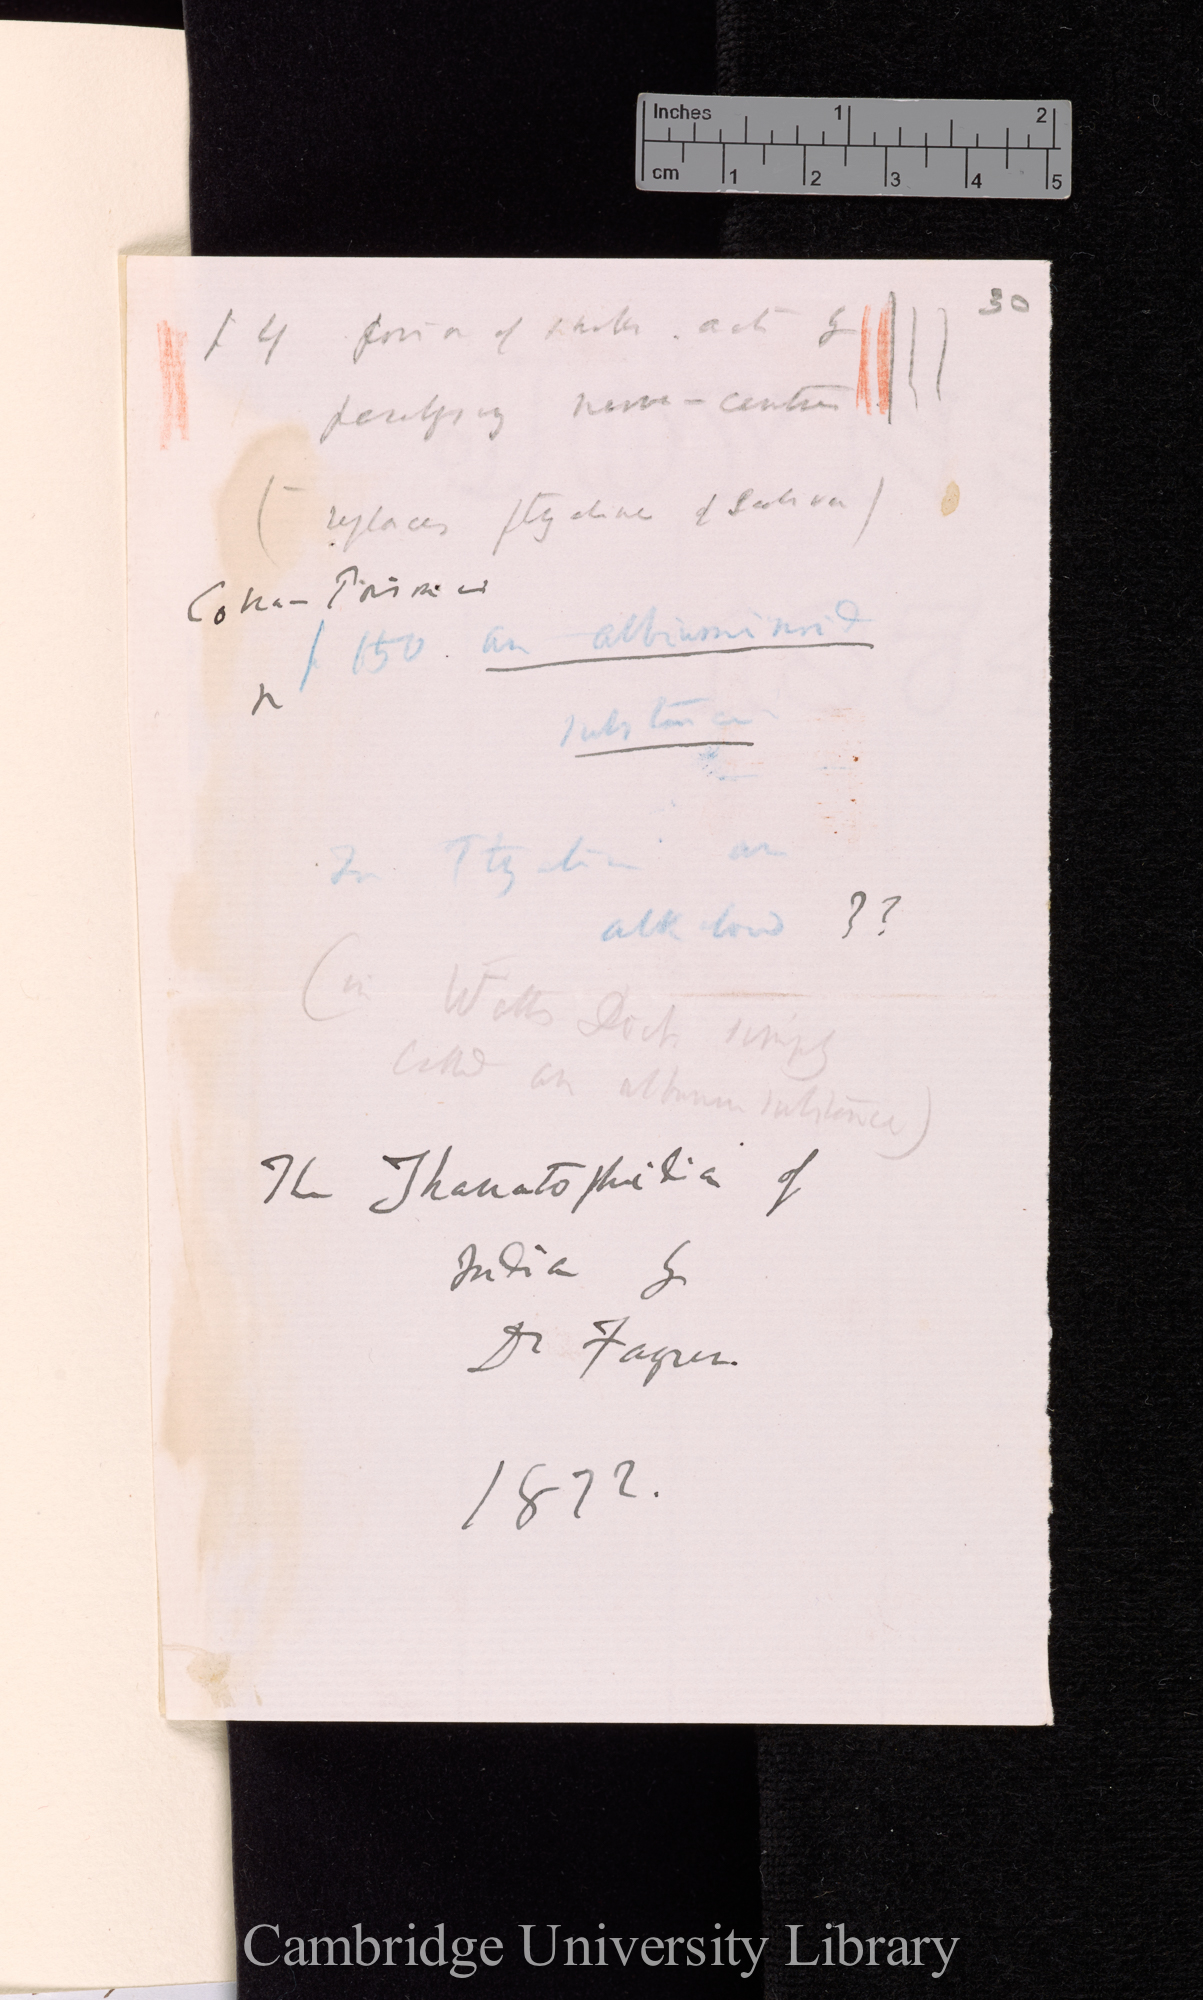 Inches 1 2
cm 1 2 3 4 5
30
p 4 poison of snakes. acts by
paralysing nerve-centres
(replaces ptyaline of Saliva)
Cobra-Poison is
p 150. an albuminoid
substance
Is Ptyalin an
alkaloid ??
(in Watts Dict. simply
called an album substance)
The Thanatophidia of
India by
Dr Fayrer.
1872.
Cambridge University Library